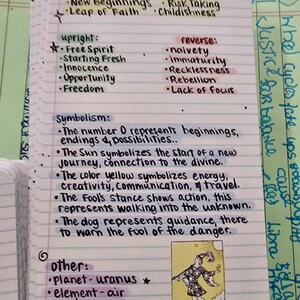 • New Beginnings • Risk Taking
• Leap of Faith • Childishness
upright: reverse:
• Free Spirit • naivety
• Starting Fresh • Immaturity
• Innocence • Recklessness
• Opportunity • Rebellion
• Freedom • Lack of Focus
symbolism:
• The number 0 represents beginnings,
endings & possibilities..
• The Sun symbolizes the start of a new
journey, connection to the divine.
• The color yellow symbolizes energy,
creativity, communication, & travel.
• The Fool's stance shows action, this
represents walking into the unknown.
• The dog represents guidance, there
to warn the fool of the danger.
other:
• planet - uranus
• element - air
Justice
balance
Libra